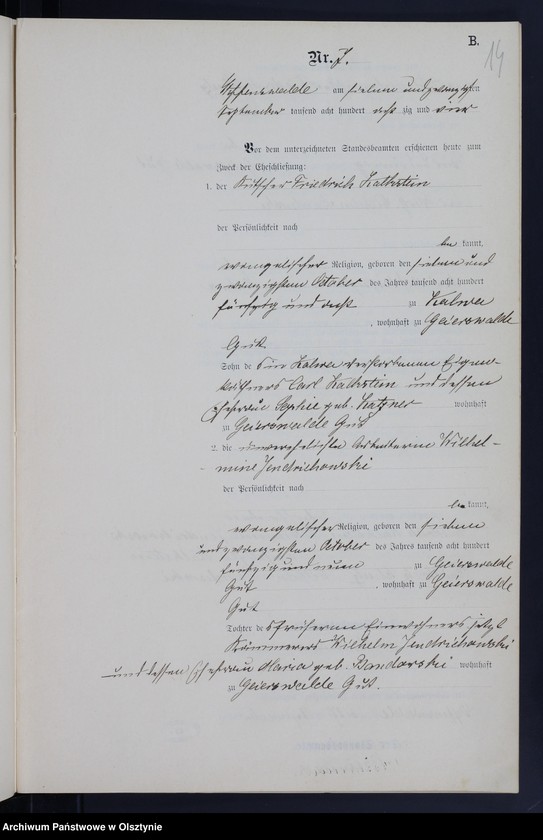 B.
14
Nr. 7.
am sieben und zwanzigsten
September tausend acht hundert acht zig und vier
Vor dem unterzeichneten Standesbeamten erschienen heute zum
Zweck der Eheschließung:
1. der Kutscher Friedrich Kathstein
der Persönlichkeit nach
be kannt,
evangelischer Religion, geboren den sieben und
zwanzigsten October des Jahres tausend acht hundert
fünfzig und acht zu Kalwa
, wohnhaft zu Geierswalde
Gut
Sohn de s in Kalwa verstorbenen Eigen-
käthners Carl Kathstein und dessen
Ehefrau Sophie geb. Katzner wohnhaft
zu Geierswalde Gut
2. die unverehelichte Arbeiterin Wilhel-
mine Jendrichowski
der Persönlichkeit nach
be kannt,
evangelischer Religion, geboren den sieben
und zwanzigsten October des Jahres tausend acht hundert
fünfzig und neun zu Geierswalde
Gut , wohnhaft zu Geierswalde
Gut
Tochter de s früheren Einwohners jetzt
Kämmerers Wilhelm Jendrichowski
und dessen Ehefrau Maria geb. Bandorski wohnhaft
zu Geierswalde Gut.
Archiwum Państwowe w Olsztynie